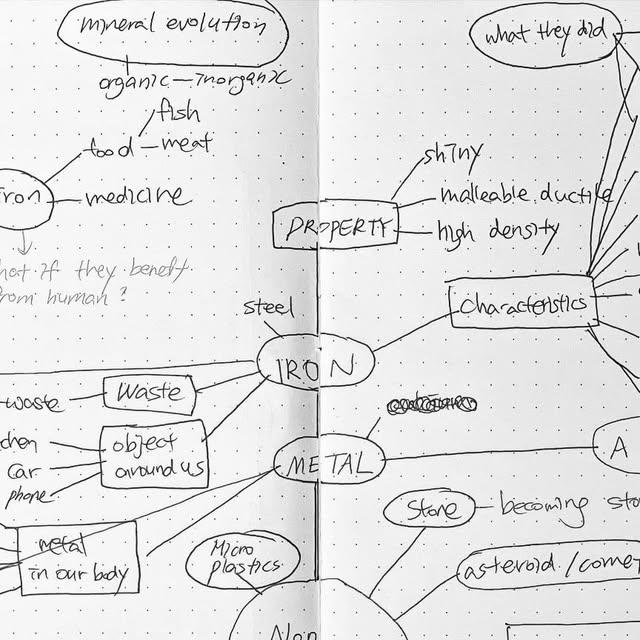 mineral evolution
what they did
organic – inorganic
fish
food – meat
iron
medicine
shiny
malleable. ductile
PROPERTY
high density
what if they benefit
from human?
steel
characteristics
IRON
Waste
-waste
object
around us
car
phone
METAL
A
Stone – becoming
metal
in our body
Micro
plastics
asteroid / comet